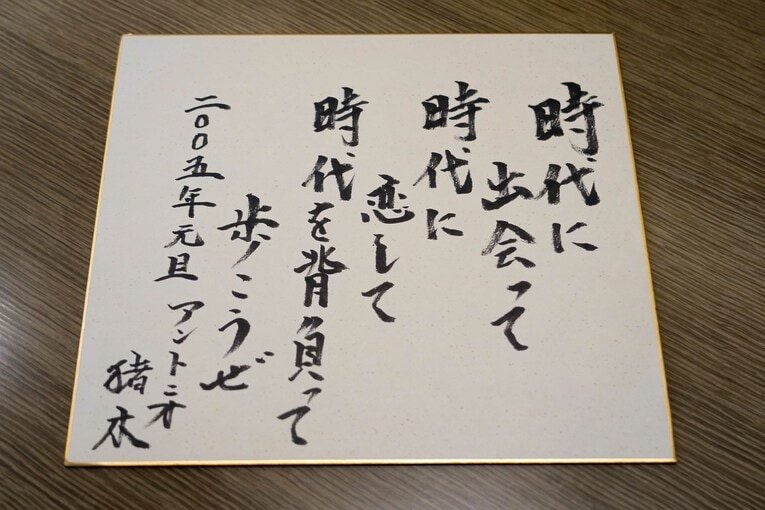 時代に
出会って
時代に
恋して
時代を背負って
歩こうぜ
二〇〇五年元旦 アントニオ
猪木